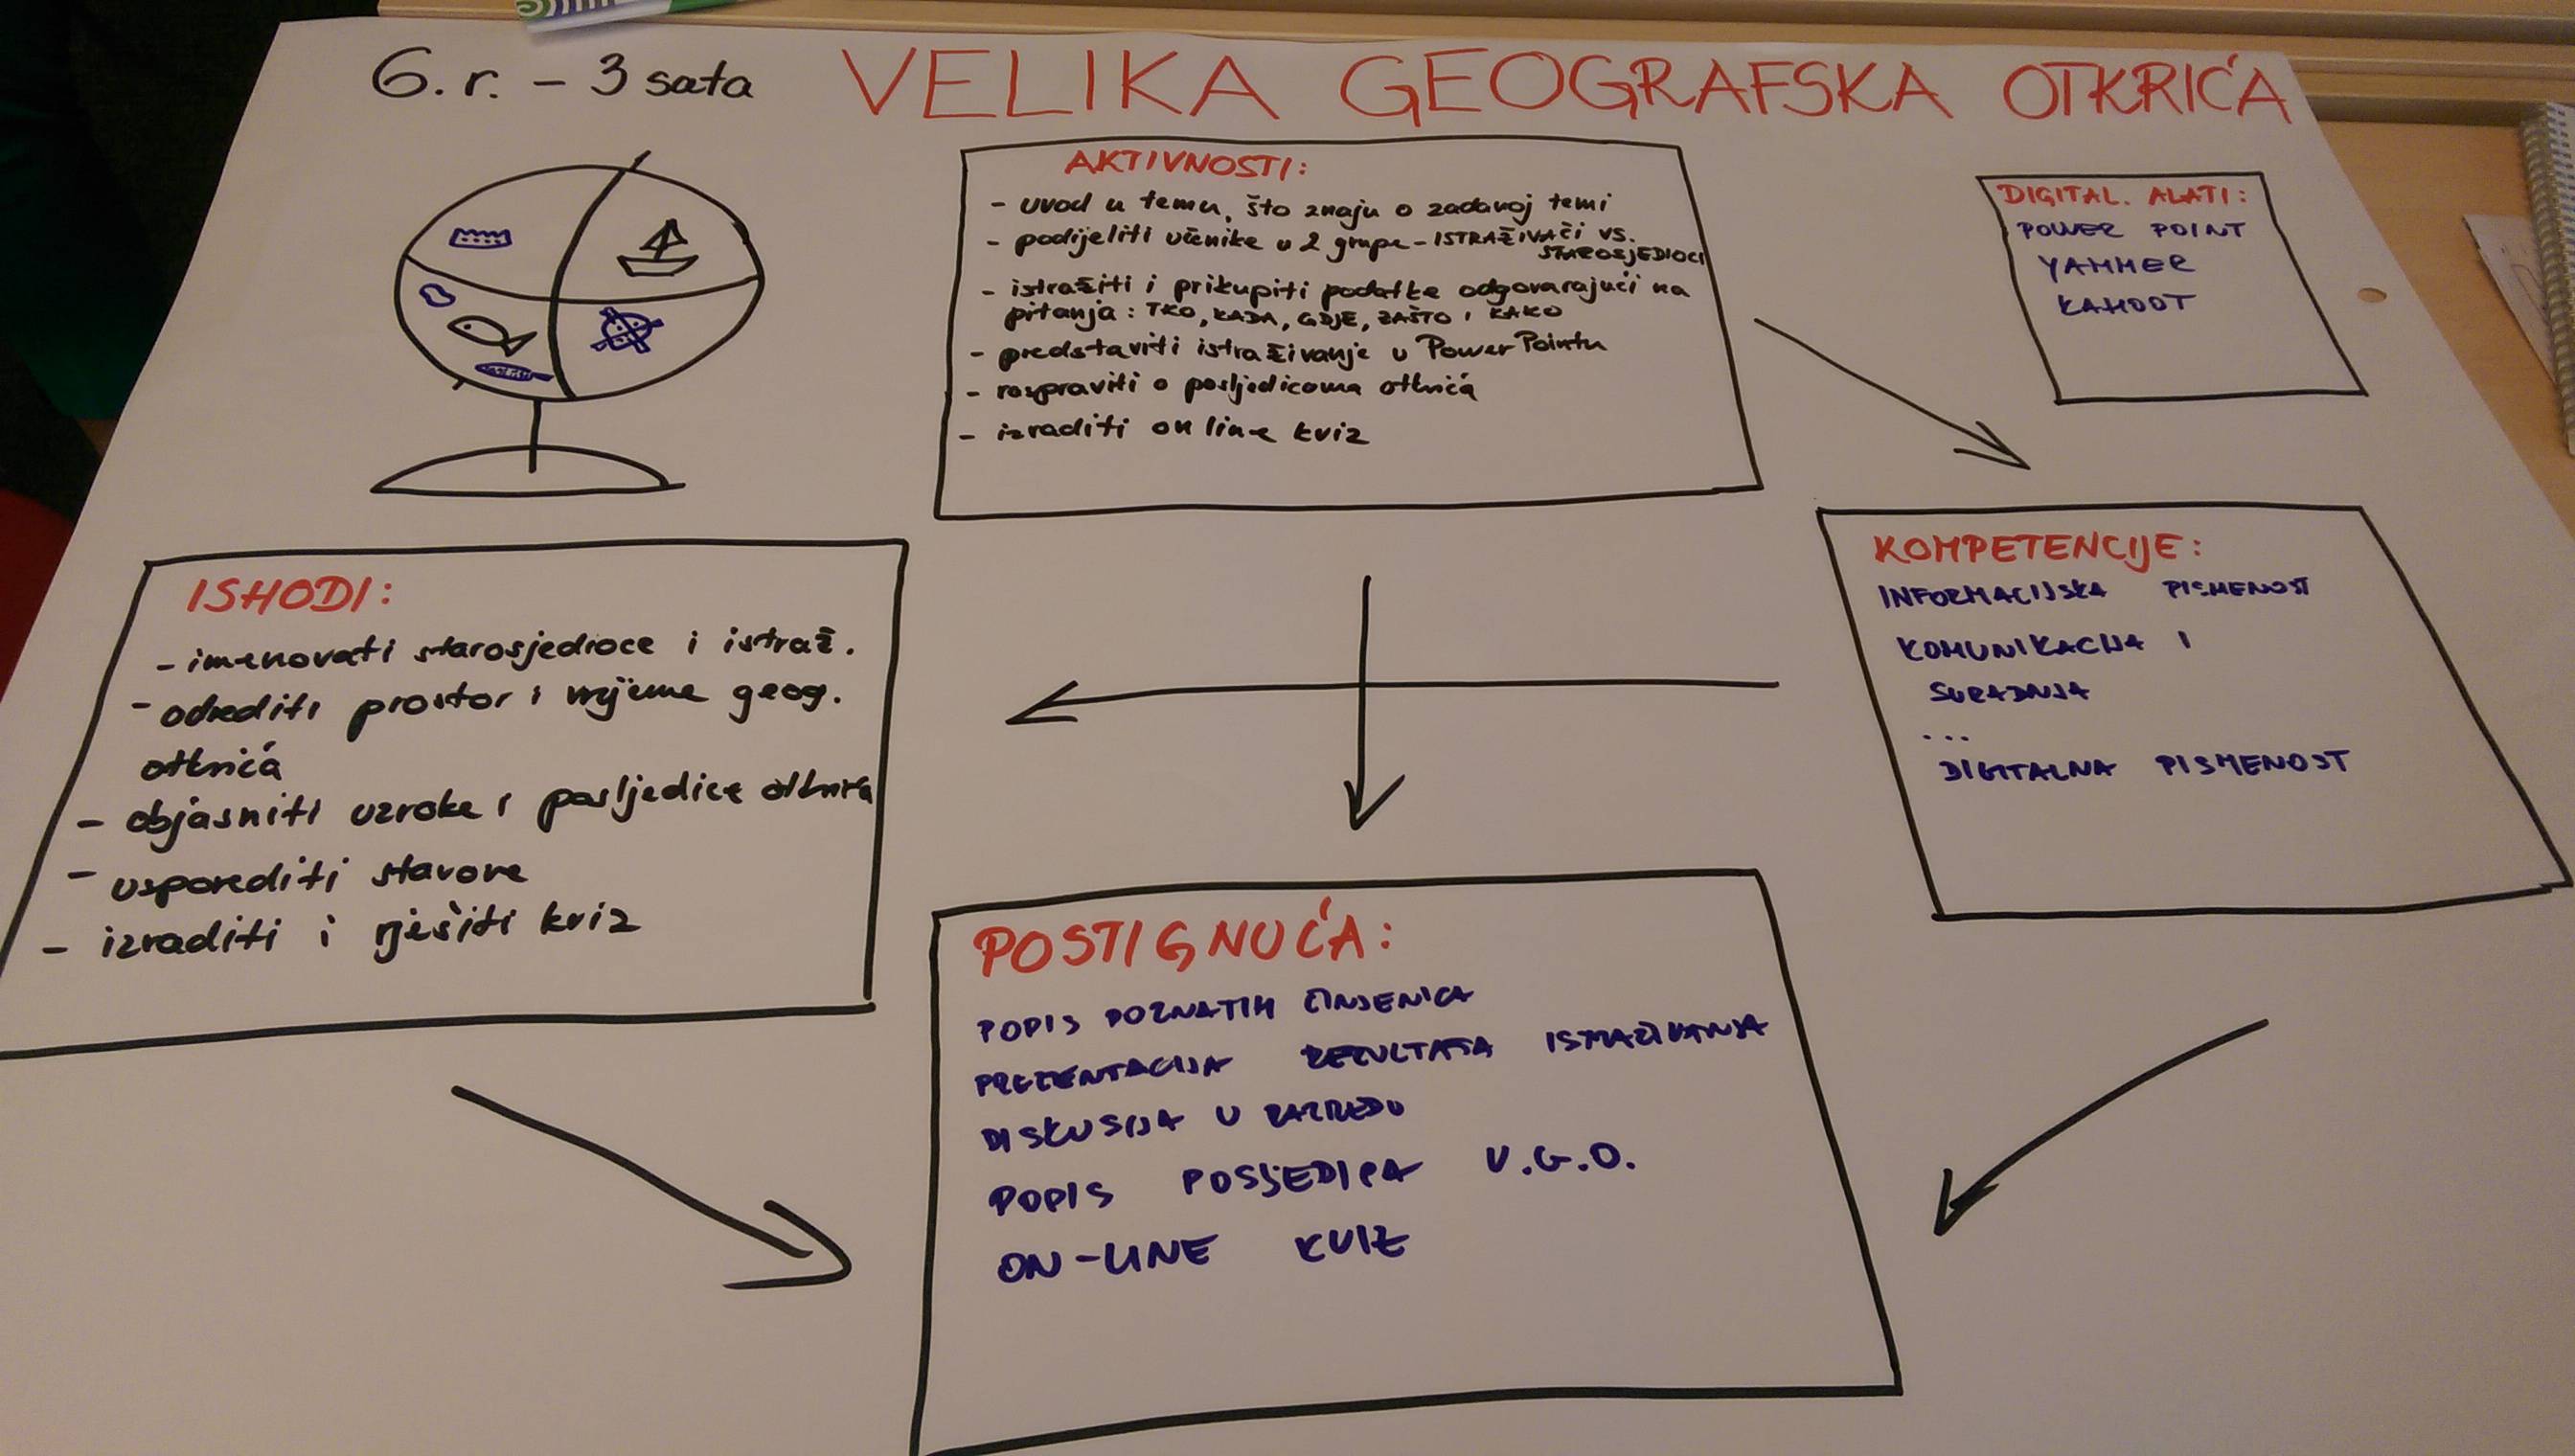 6. r. - 3 sata
VELIKA GEOGRAFSKA OTKRIĆA
AKTIVNOSTI:
- uvod u temu, što znaju o zadanoj temi
- podijeliti učenike u 2 grupe - ISTRAŽIVAČI VS.
STAROSJEDIOCI
- istražiti i prikupiti podatke odgovarajući na
pitanja: TKO, KADA, GDJE, ZAŠTO I KAKO
- predstaviti istraživanje u PowerPointu
- raspraviti o posljedicama otkrića
- izraditi on line kviz
DIGITAL. ALATI:
POWER POINT
YAMMER
KAHOOT
ISHODI:
- imenovati starosjedioce i istraž.
- odrediti prostor i vrijeme geog.
otkrića
- objasniti uzroke i posljedice otkrića
- usporediti stavove
- izraditi i riješiti kviz
KOMPETENCIJE:
INFORMACIJSKA PISMENOST
KOMUNIKACIJA I
SURADNJA
...
DIGITALNA PISMENOST
POSTIGNUĆA:
POPIS POZNATIH ČINJENICA
PREZENTACIJA REZULTATA ISTRAŽIVANJA
DISKUSIJA U RAZREDU
POPIS POSLJEDICA V.G.O.
ON-LINE KVIZ